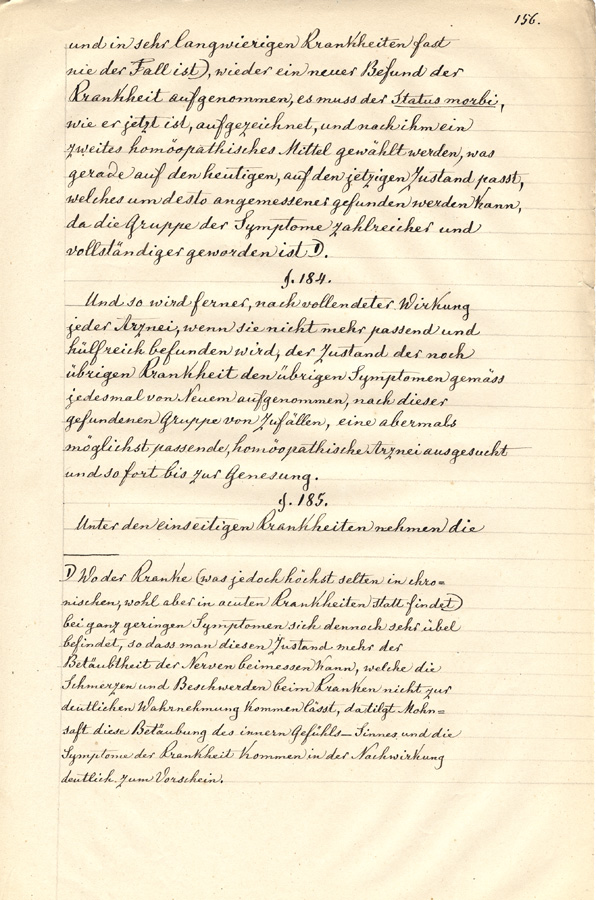 156.
und in sehr langwierigen Krankheiten fast
nie der Fall ist), wieder ein neuer Befund der
Krankheit aufgenommen, es muss der Status morbi,
wie er jetzt ist, aufgezeichnet, und nach ihm ein
zweites homöopathisches Mittel gewählt werden, was
gerade auf den heutigen, auf den jetzigen Zustand passt,
welches um desto angemessener gefunden werden kann,
da die Gruppe der Symptome zahlreicher und
vollständiger geworden ist 1).
§. 184.
Und so wird ferner, nach vollendeter Wirkung
jeder Arznei, wenn sie nicht mehr passend und
hülfreich befunden wird, der Zustand der noch
übrigen Krankheit den übrigen Symptomen gemäss
jedesmal von Neuem aufgenommen, nach dieser
gefundenen Gruppe von Zufällen, eine abermals
möglichst passende, homöopathische Arznei ausgesucht
und so fort bis zur Genesung.
§. 185.
Unter den einseitigen Krankheiten nehmen die
1) Wo der Kranke (was jedoch höchst selten in chro=
nischen, wohl aber in acuten Krankheiten statt findet)
bei ganz geringen Symptomen sich dennoch sehr übel
befindet, so dass man diesen Zustand mehr der
Betäubtheit der Nerven beimessen kann, welche die
Schmerzen und Beschwerden beim Kranken nicht zur
deutlichen Wahrnehmung kommen lässt, da tilgt Mohn=
saft diese Betäubung des innern Gefühls-Sinnes und die
Symptome der Krankheit kommen in der Nachwirkung
deutlich zum Vorschein.